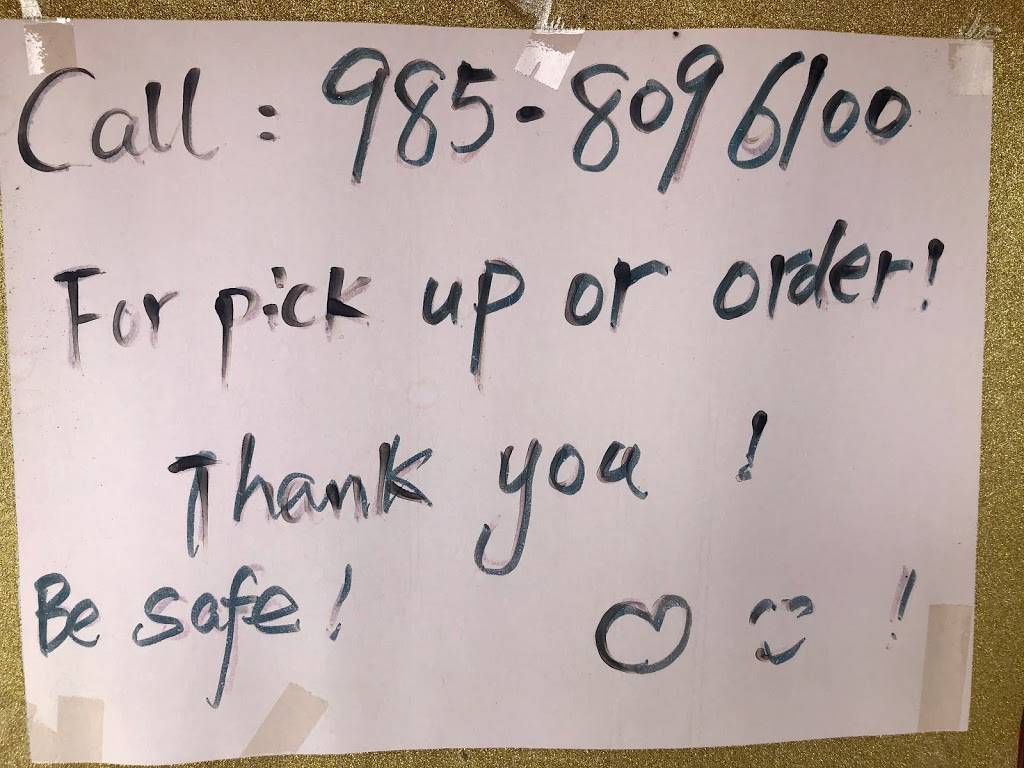 Call : 985-809 6100
For pick up or order!
Thank you !
Be safe ! !